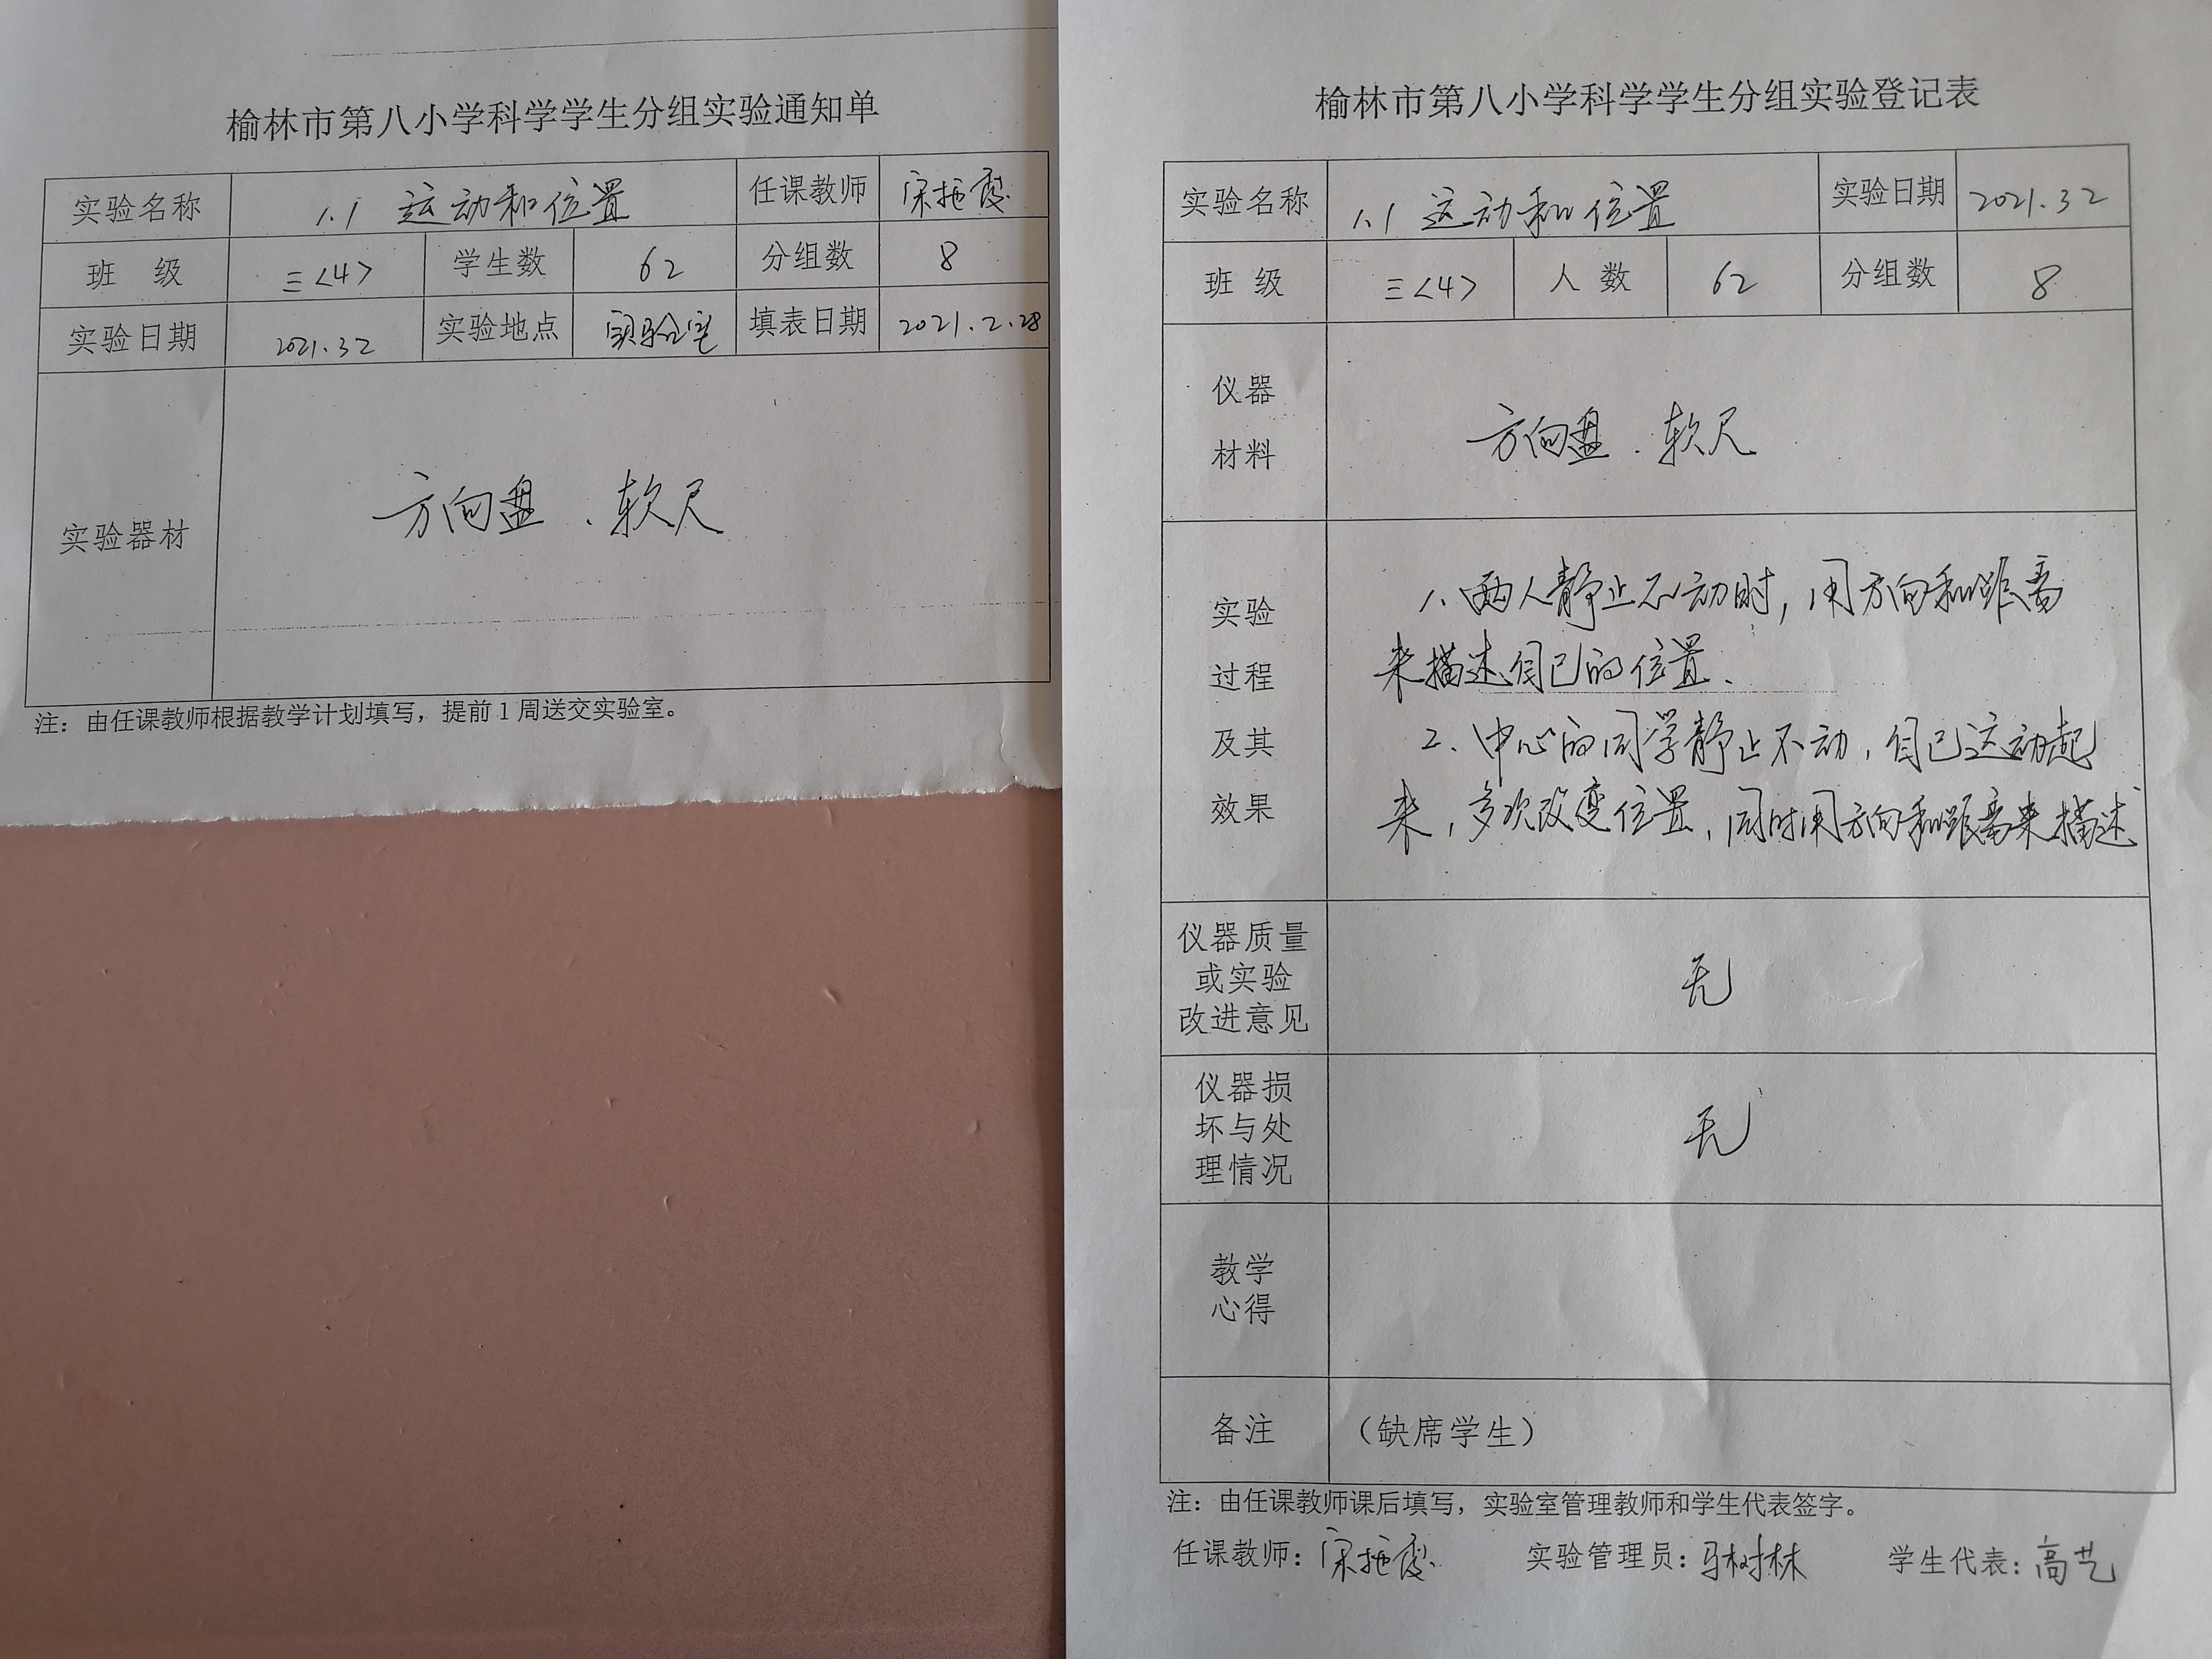 榆林市第八小学科学学生分组实验通知单
实验名称 1.1 运动和位置 任课教师 宋拖霞
班 级 三<4> 学生数 62 分组数 8
实验日期 2021.3.2 实验地点 实验室 填表日期 2021.2.28
实验器材 方向盘、软尺
注：由任课教师根据教学计划填写，提前1周送交实验室。
榆林市第八小学科学学生分组实验登记表
实验名称 1.1 运动和位置 实验日期 2021.3.2
班 级 三<4> 人 数 62 分组数 8
仪器
材料
方向盘、软尺
实验
过程
及其
效果
1、两人静止不动时，用方向和距离
来描述自己的位置.
2、中心的同学静止不动，自己运动起
来，多次改变位置，同时用方向和距离来描述
仪器质量
或实验
改进意见
无
仪器损
坏与处
理情况
无
教学
心得
备注 （缺席学生）
注：由任课教师课后填写，实验室管理教师和学生代表签字。
任课教师：宋拖霞 实验管理员：马树林 学生代表：高艺